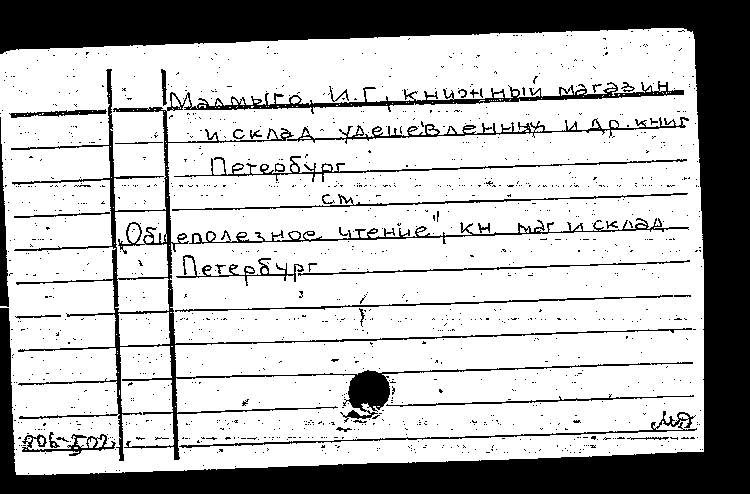 Малмыго, И.Г., книжный магазин
и склад удешевленных и др. книг
Петербург
см.
„Общеполезное чтение", кн. маг и склад
Петербург
МД